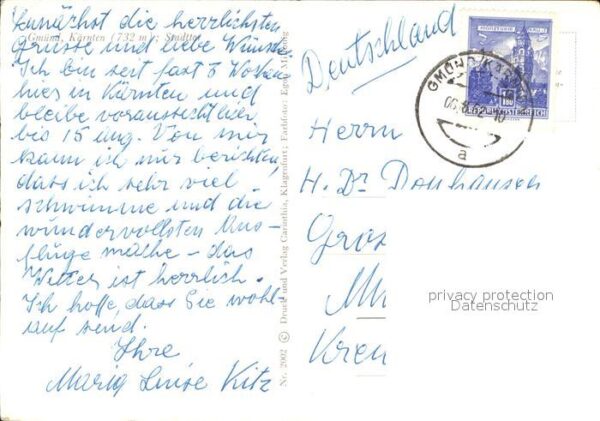 Zunächst die herrlichsten
Grüsse und liebe Wünsche
Ich bin seit fast 3 Wochen
hier in Kärnten und
bleibe voraussichtlich
bis 15 Aug. Von mir
kann ich nur berichten,
dass ich sehr viel
schwimme und die
wundervollsten Aus-
flüge mache - das
Wetter ist herrlich.
Ich hoffe, dass Sie wohl-
auf send.
Ihre
Maria Luise Kitz
Gmünd, Kärnten (732 m); Stadttor
Nr. 2002 © Druck und Verlag Carinthia, Klagenfurt; Farbfoto: Egon
Deutschland
GMÜND/KÄRNTEN
a
REPUBLIK ÖSTERREICH
Herrn
H. Dr Donhausen
Gros
Kren
privacy protection
Datenschutz